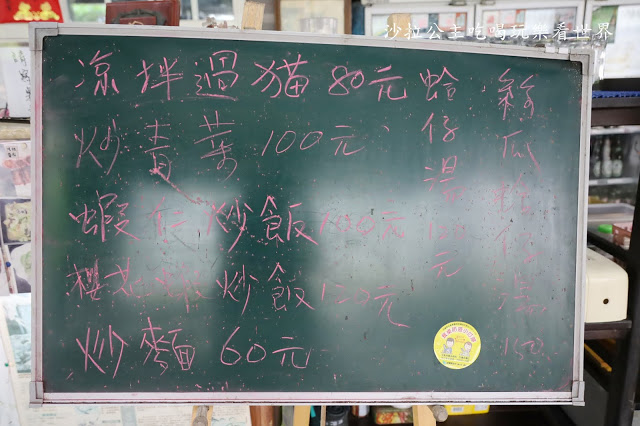 沙拉公主吃喝玩樂看世界
涼拌過猫80元
炒青菜100元
蝦仁炒飯100元
櫻花蝦炒飯120元
炒麵60元
蛤仔湯120元
絲瓜蛤仔湯150